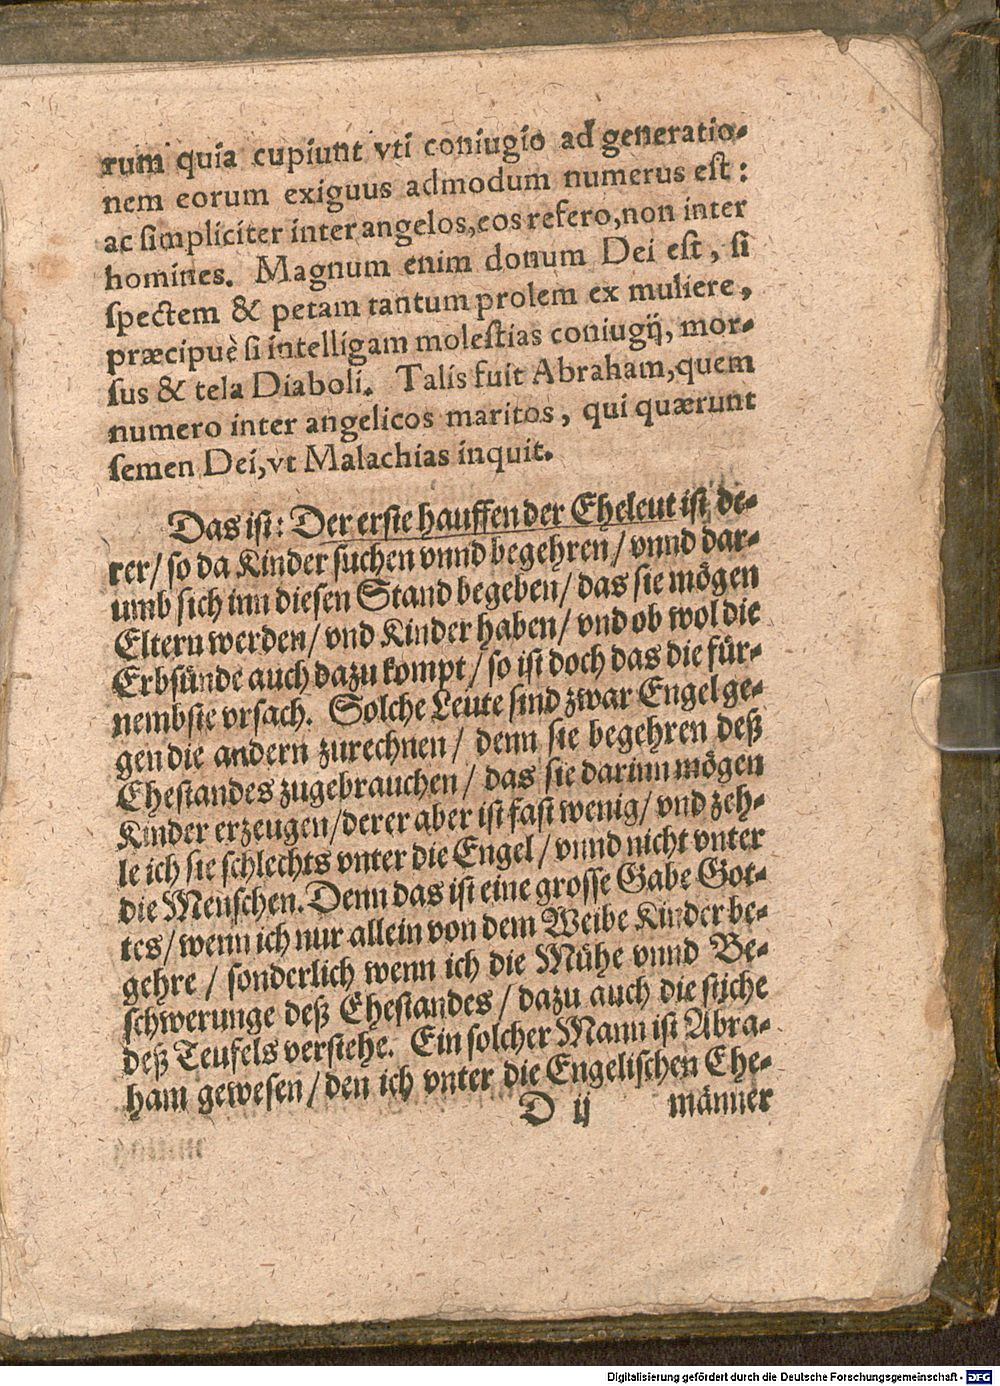 rum quia cupiunt vti coniugio ad generatio-
nem eorum exiguus admodum numerus est:
ac simpliciter inter angelos, eos refero, non inter
homines. Magnum enim donum Dei est, si
spectem & petam tantum prolem ex muliere,
præcipuè si intelligam molestias coniugij, mor-
sus & tela Diaboli. Talis fuit Abraham, quem
numero inter angelicos maritos, qui quærunt
semen Dei, vt Malachias inquit.
Das ist: Der erste hauffen der Eheleut ist de-
rer/ so da Kinder suchen vnnd begehren/ vnnd dar-
umb sich inn diesen Stand begeben/ das sie mögen
Eltern werden/ vnd Kinder haben/ vnd ob wol die
Erbsünde auch dazu kompt/ so ist doch das die für-
nembste vrsach. Solche Leute sind zwar Engel ge-
gen die andern zurechnen/ denn sie begehren deß
Ehestandes zugebrauchen/ das sie darinn mögen
Kinder erzeugen/ derer aber ist fast wenig/ vnd zeh-
le ich sie schlechts vnter die Engel/ vnnd nicht vnter
die Menschen. Denn das ist eine grosse Gabe Got-
tes/ wenn ich nur allein von dem Weibe Kinder be-
gehre/ sonderlich wenn ich die Mühe vnnd Be-
schwerunge deß Ehestandes/ dazu auch die stiche
deß Teufels verstehe. Ein solcher Mann ist Abra-
ham gewesen/ den ich vnter die Engelischen Ehe-
D ij männer
Digitalisierung gefördert durch die Deutsche Forschungsgemeinschaft - DFG